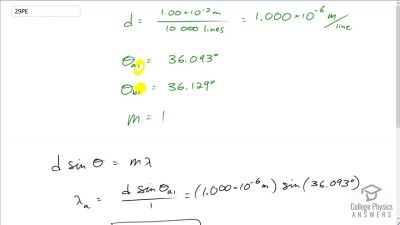 29PE
d = 1.00×10⁻² m / 10 000 lines = 1.000×10⁻⁶ m/line
θa1 = 36.093°
θb1 = 36.129°
m = 1
d sin θ = mλ
λa = d sin θa1 / 1 = (1.000×10⁻⁶ m) sin(36.093°)
College Physics
ANSWERS